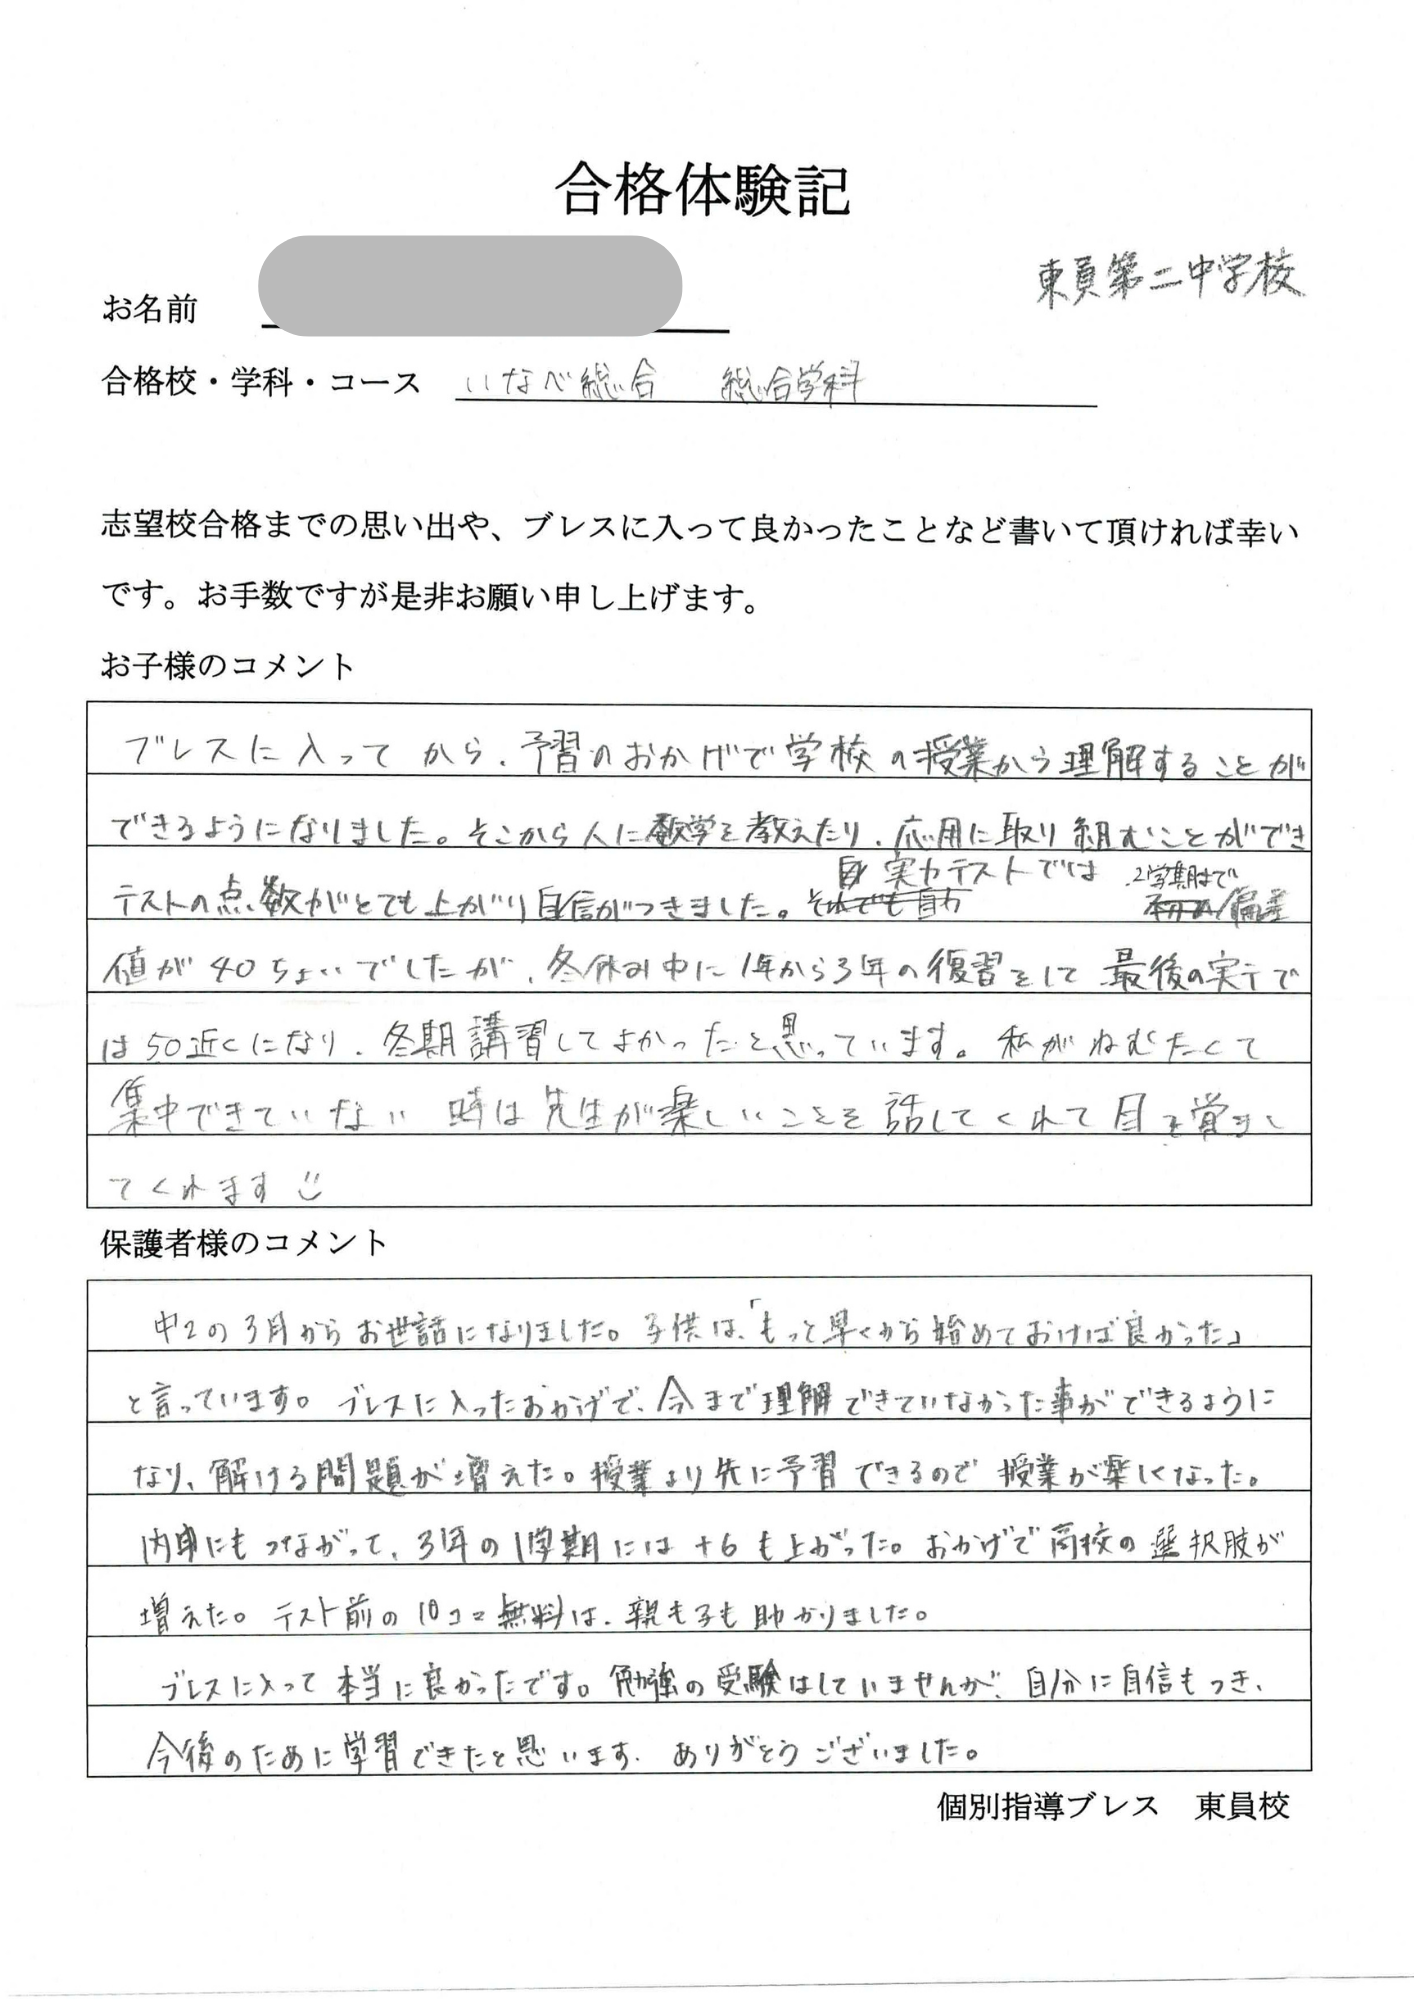 合格体験記
東員第二中学校
お名前
合格校・学科・コース いなべ総合 総合学科
志望校合格までの思い出や、ブレスに入って良かったことなど書いて頂ければ幸い
です。お手数ですが是非お願い申し上げます。
お子様のコメント
ブレスに入ってから、予習のおかげで学校の授業から理解することが
できるようになりました。そこから人に数学を教えたり、応用に取り組むことができ
テストの点数がとても上がり自信がつきました。実力テストでは、2学期まで偏差
値が40ちょいでしたが、冬休み中に1年から3年の復習をして最後の実テで
は50近くになり、冬期講習してよかったと思っています。私がねむたくて
集中できていない時は先生が楽しいことを話してくれて目を覚まし
てくれます
保護者様のコメント
中2の3月からお世話になりました。子供は、「もっと早くから始めておけば良かった」
と言っています。ブレスに入ったおかげで、今まで理解できていなかった事ができるように
なり、解ける問題が増えた。授業より先に予習できるので授業が楽しくなった。
内申にもつながって、3年の1学期には+6も上がった。おかげで高校の選択肢が
増えた。テスト前の10コマ無料は、親も子も助かりました。
ブレスに入って本当に良かったです。勉強の受験はしていませんが、自分に自信もつき、
今後のために学習できたと思います。ありがとうございました。
個別指導ブレス 東員校